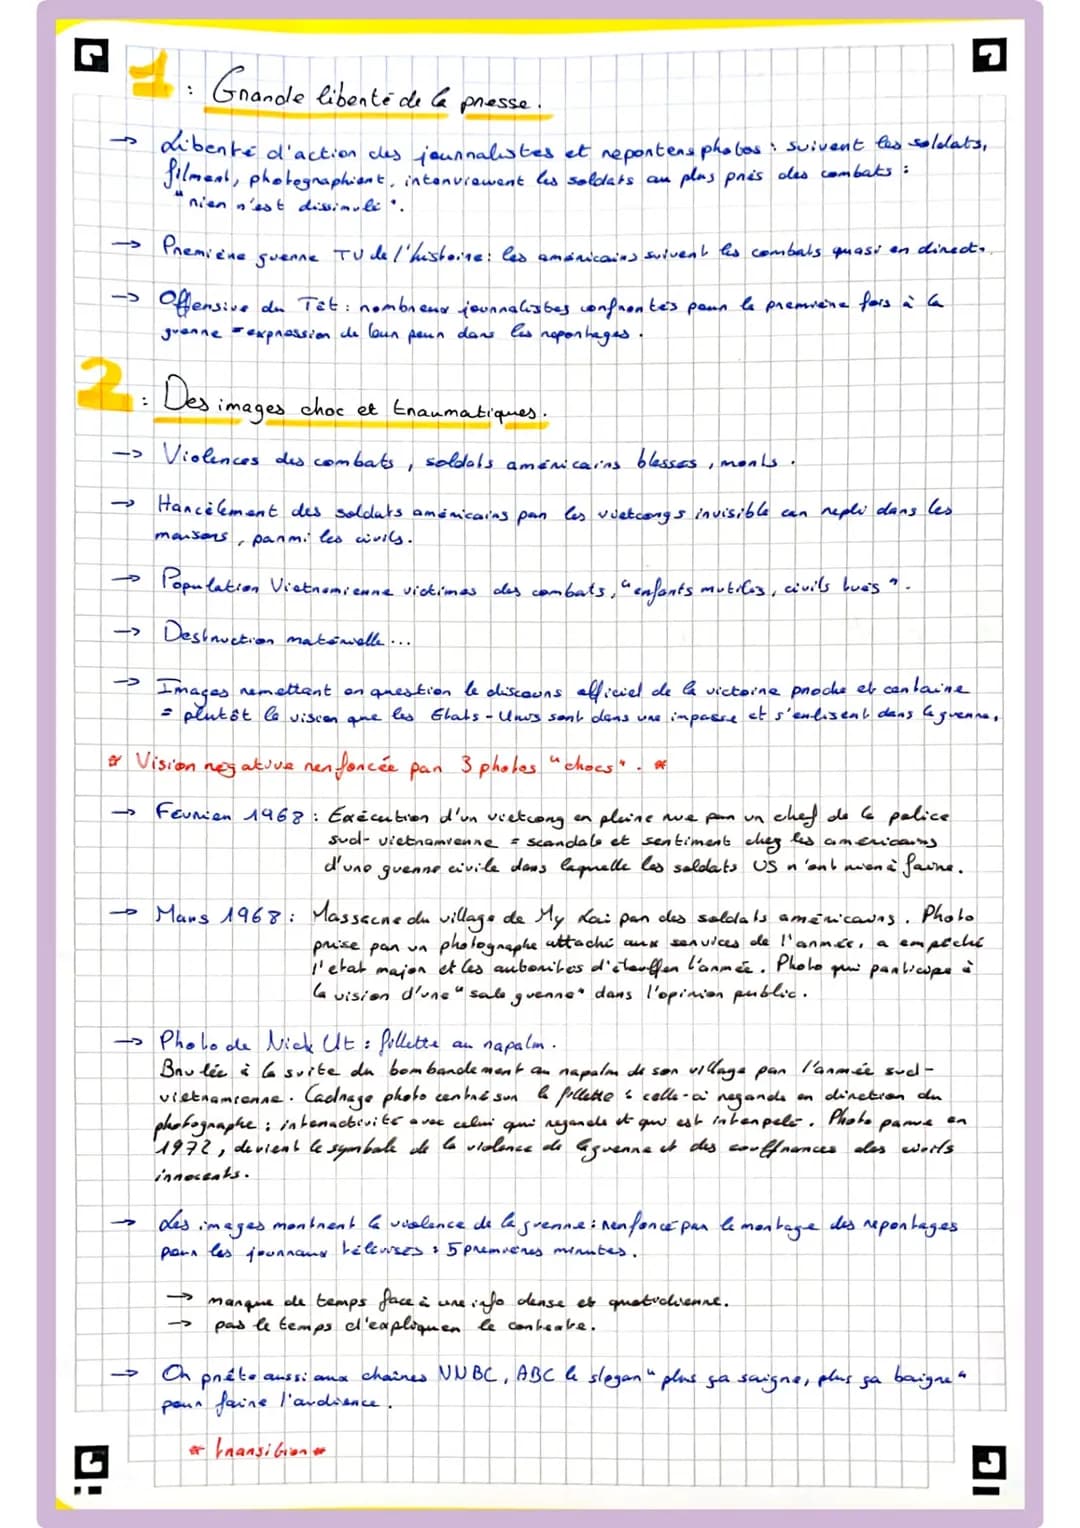 1 : Grande liberté de la presse.
→ Liberté d'action des journalistes et reporters photos : suivent les soldats,
filment, photographient, interviewent les soldats au plus près des combats :
"rien n'est dissimulé".
→ Première guerre TV de l'histoire : les américains suivent les combats quasi en direct.
→ Offensive du Têt : nombreux journalistes confrontés pour la première fois à la
guerre = expression de leur peur dans les reportages.
2 : Des images choc et traumatiques.
→ Violences des combats, soldats américains blessés, morts.
→ Harcèlement des soldats américains par les vietcongs invisible car repli dans les
maisons, parmi les civils.
→ Population Vietnamienne victimes des combats, "enfants mutilés, civils tués".
→ Destruction matérielle...
→ Images remettant en question le discours officiel de la victoire proche et certaine
= plutôt la vision que les Etats-Unis sont dans une impasse et s'enlisent dans la guerre.
* Vision négative renforcée par 3 photos "chocs". *
→ Février 1968 : Exécution d'un vietcong en pleine rue par un chef de la police
sud-vietnamienne = scandale et sentiment chez les américains
d'une guerre civile dans laquelle les soldats US n'ont rien à faire.
→ Mars 1968 : Massacre du village de My Lai par des soldats américains. Photo
prise par un photographe attaché aux services de l'armée, a empêché
l'état major et les autorités d'étouffer l'armée. Photo qui participe à
la vision d'une "sale guerre" dans l'opinion public.
→ Photo de Nick Ut : fillette au napalm.
Brulée à la suite du bombardement au napalm de son village par l'armée sud-
vietnamienne. Cadrage photo centré sur la fillette : celle-ci regarde en direction du
photographe : interactivité avec celui qui regarde et qui est interpelé. Photo parue en
1972, devient le symbole de la violence de la guerre et des souffrances des civils
innocents.
→ Les images montrent la violence de la guerre : renforcé par le montage des reportages
pour les journaux télévisés : 5 premières minutes.
→ manque de temps face à une info dense et quotidienne.
→ pas le temps d'expliquer le contexte.
→ On prête aussi aux chaînes NNBC, ABC le slogan "plus ça saigne, plus ça baigne"
pour faire l'audience.
* transition *